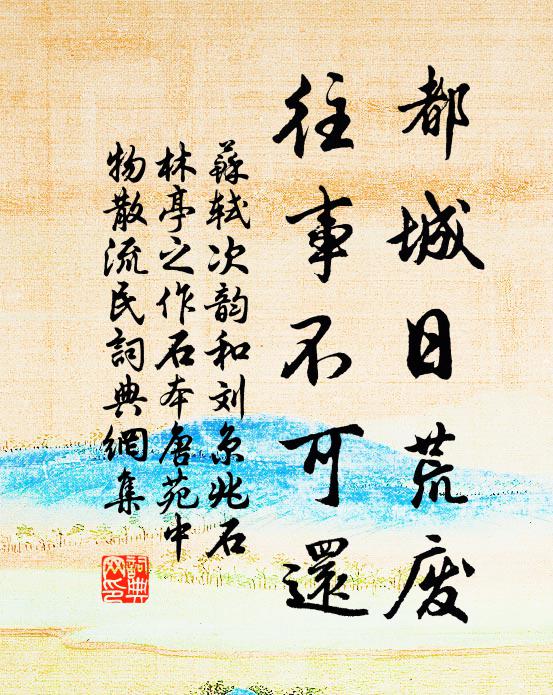 都城日荒废
往事不可還
蘇轼次韵和刘京兆石
林亭之作石本唐苑中
物散流民詞典網集
詞典
网印